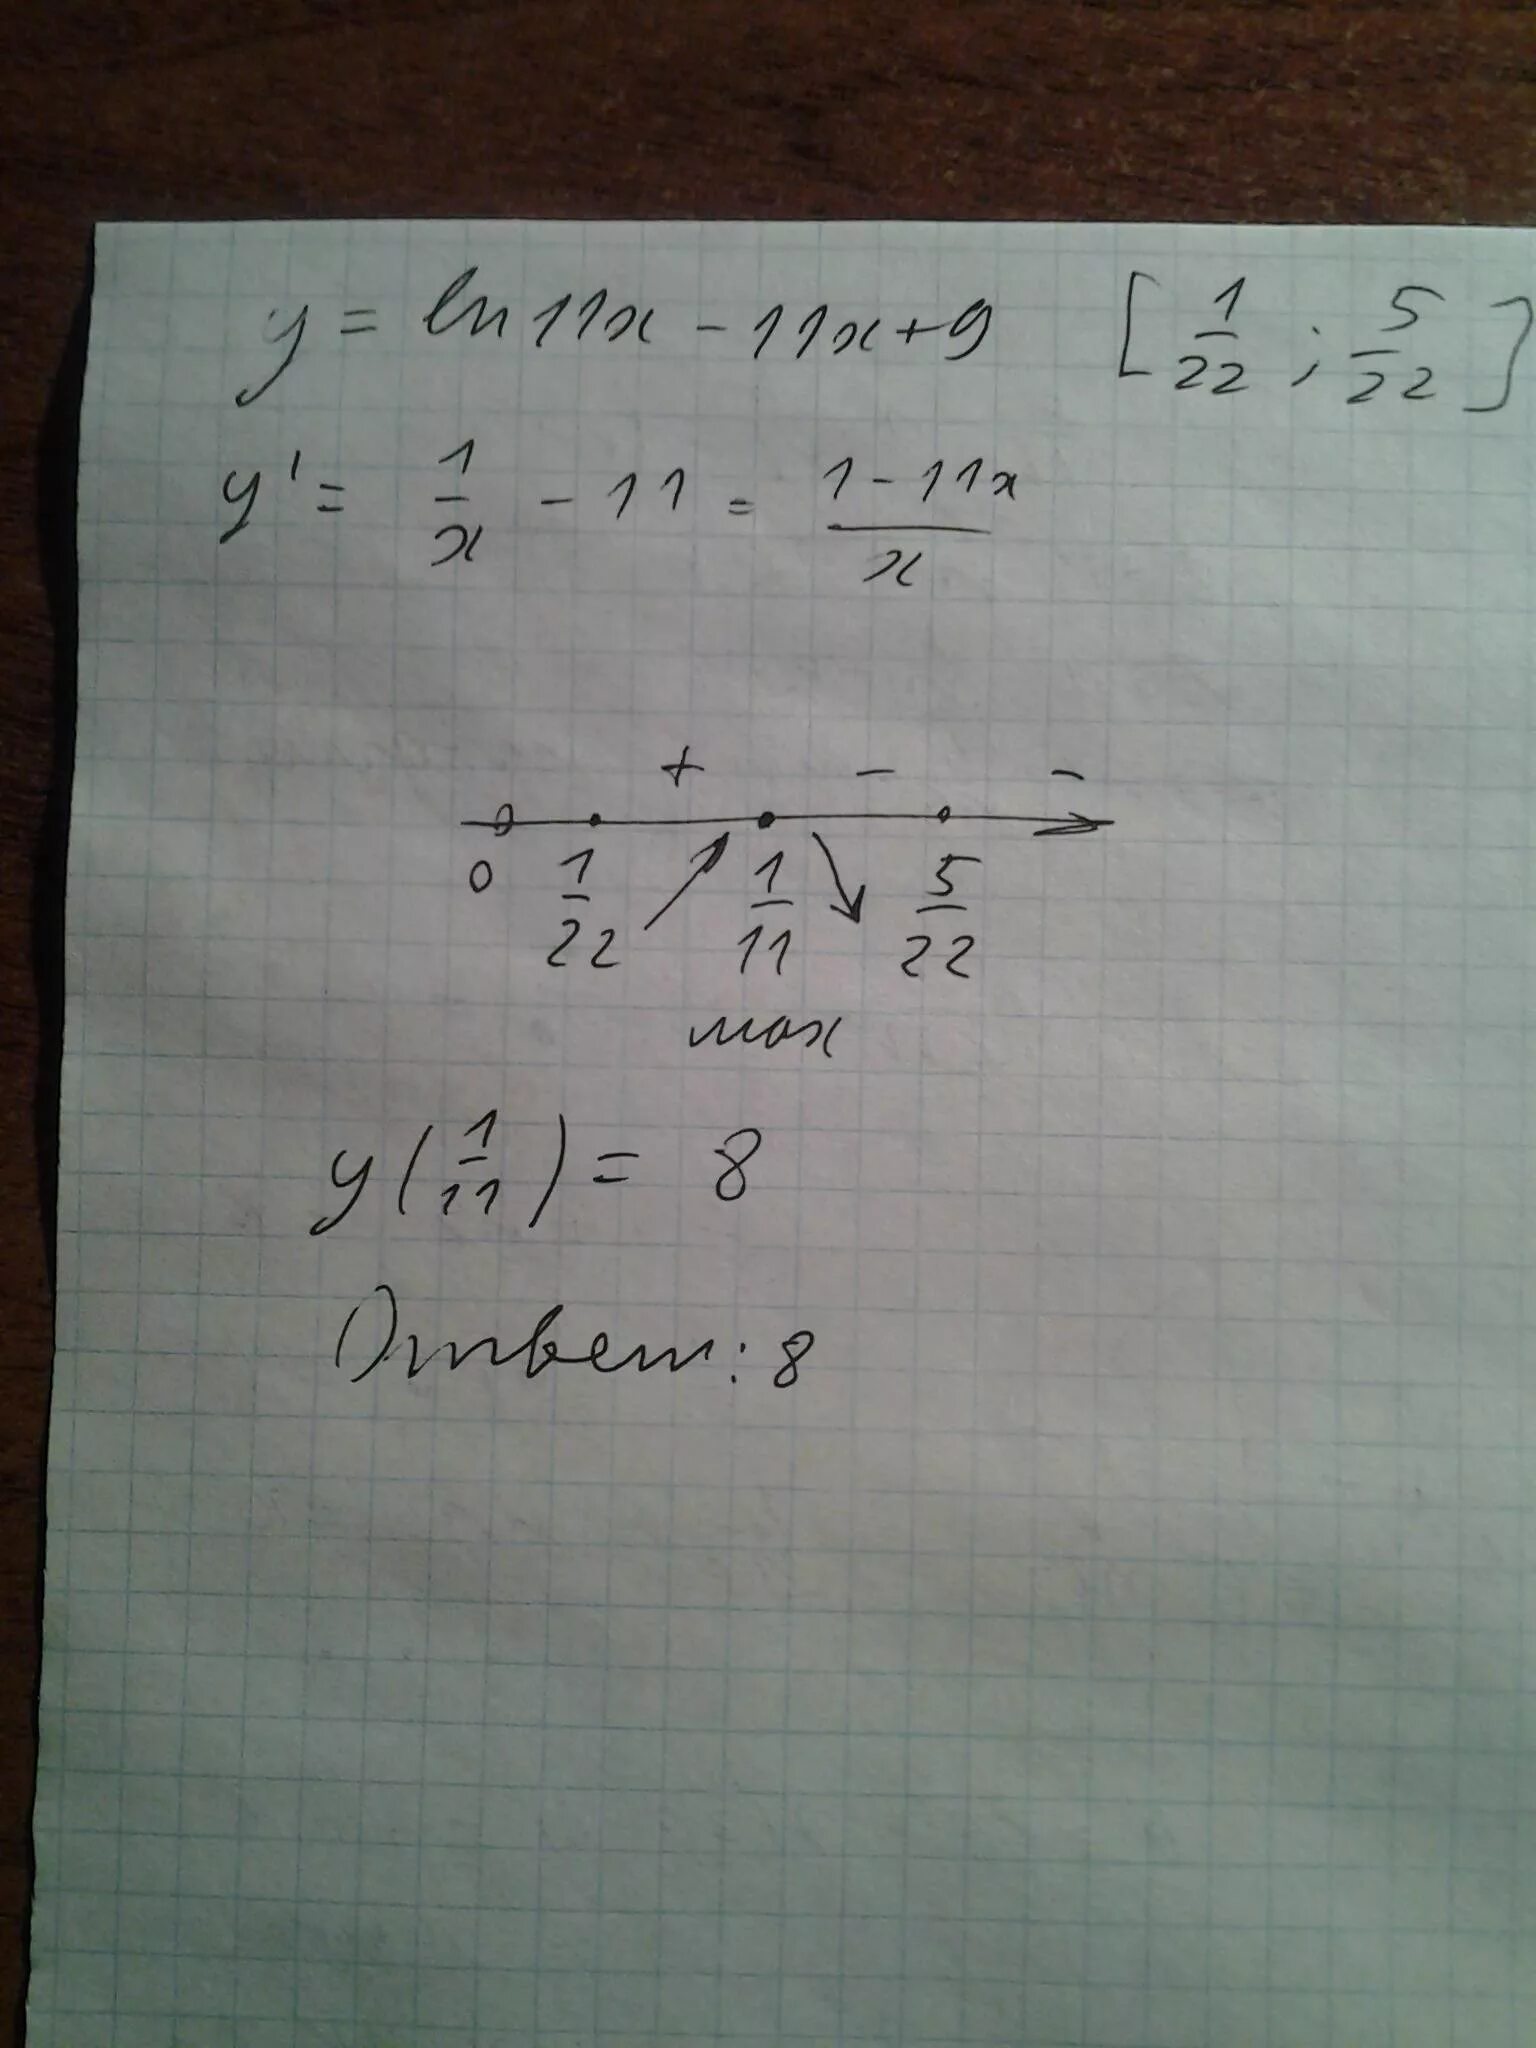 y = ln 11x - 11x + 9 [1/22 ; 5/22]
y' = 1/x - 11 = 1 - 11x/x
+ - -
0 1/22 1/11 5/22
max
y(1/11) = 8
Ответ: 8